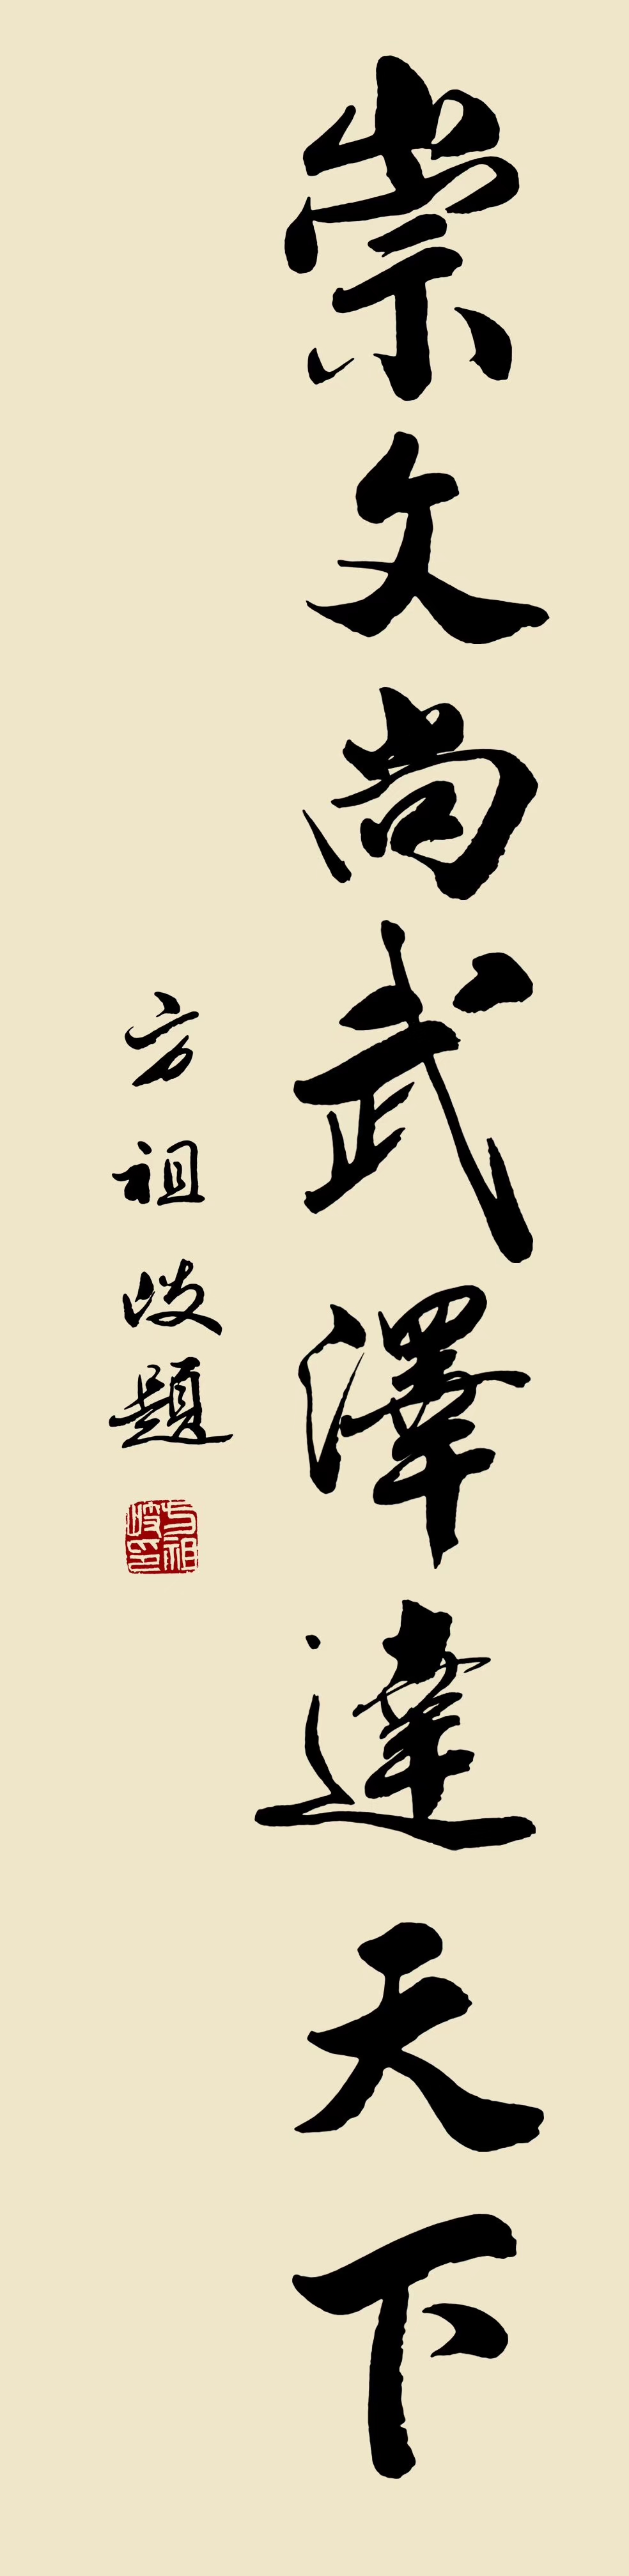 崇文尚武澤達天下
方祖岐題
方祖岐印